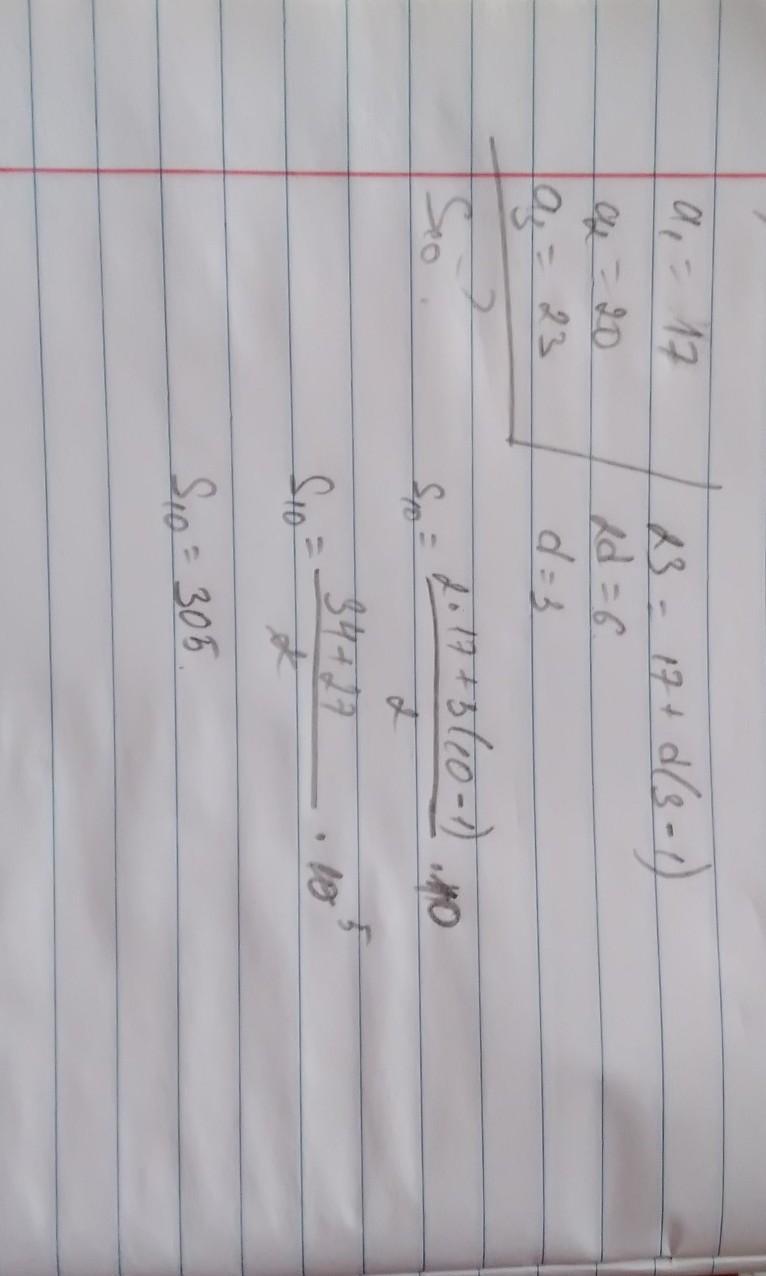 a₁ = 17
a₂ = 20
a₃ = 23
S₁₀ - ?
23 = 17 + d(3-1)
2d = 6
d = 3
S₁₀ = (2·17 + 3(10-1))/2 · 10
S₁₀ = (34 + 27)/2 · 10 5
S₁₀ = 305.